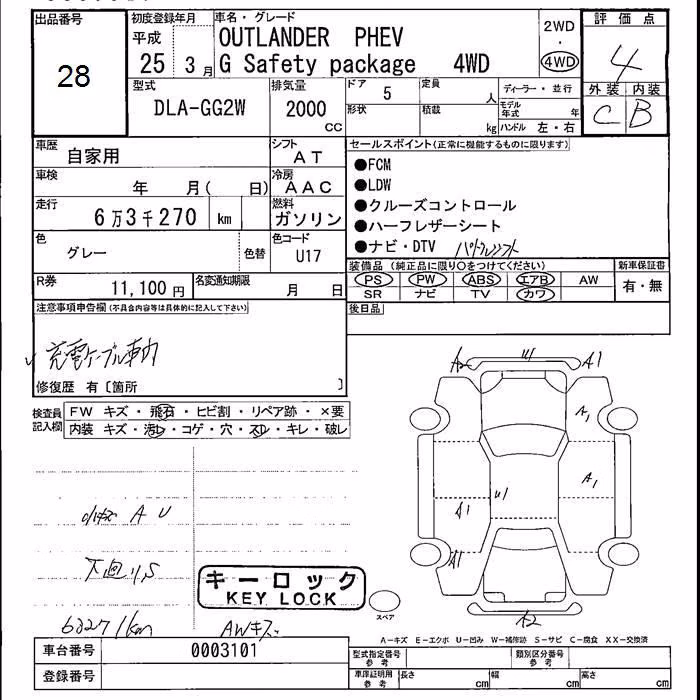 出品番号
28
初度登録年月
平成
25 3月
車名・グレード
OUTLANDER PHEV
G Safety package 4WD
2WD
・
4WD
評価点
4
外装 内装
C B
型式
DLA-GG2W
排気量
2000
CC
ドア
5
形状
定員
人
積載
kg
ディーラー・並行
モデル年式 年
ハンドル 左・右
車歴
自家用
シフト
AT
車検
年 月( 日)
冷房
AAC
走行
6万3千270 km
燃料
ガソリン
色
グレー
色替
色コード
U17
R券
11,100円
名変通知期限
月 日
セールスポイント(正常に機能するものに限ります)
●FCM
●LDW
●クルーズコントロール
●ハーフレザーシート
●ナビ・DTV パドルシフト
装備品(純正品に限り○をつけてください)
PS PW ABS エアB AW
SR ナビ TV カワ
新車保証書
有・無
注意事項申告欄(不具合内容等は具体的に記入して下さい)
後日品
充電ケーブル車内
修復歴 有〔箇所 〕
検査員記入欄
FW キズ・飛石・ヒビ割・リペア跡・×要
内装 キズ・汚レ・コゲ・穴・スレ・キレ・破レ
A2 A1
A1
A1
A1
A1
A2
小キズ A U
下回りS
63271km
AWキズ
キーロック
KEY LOCK
スペア
A-キズ E-エクボ U-凹み W-補修跡 S-サビ C-腐食 XX-交換済
車台番号
0003101
登録番号
型式指定番号
参考
類別区分番号
参考
車庫証明用
参考
長さ cm
幅 cm
高さ cm